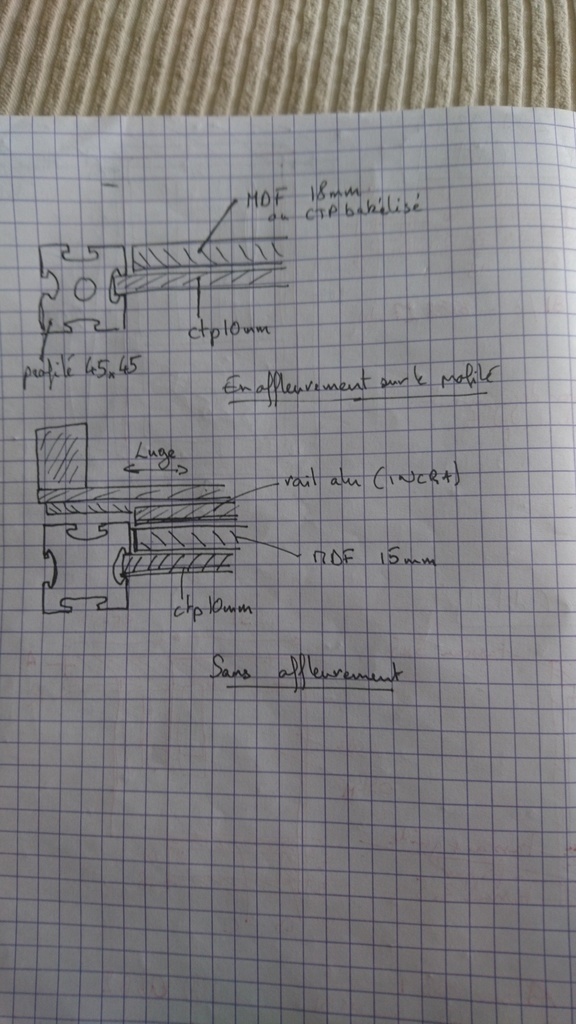 MDF 18mm
ou CTP bakélisé
ctp10mm
profilé 45x45
En affleurement sur le profilé
Luge
rail alu (INCRA)
MDF 15mm
ctp10mm
Sans affleurement